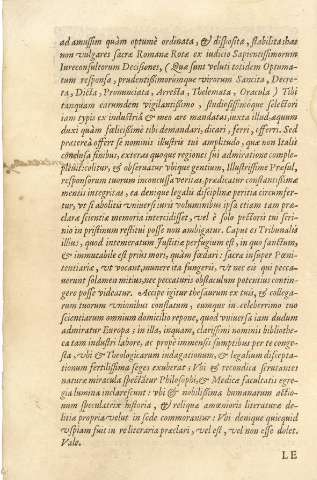 ad amussim quàm optumè ordinata, & disposita, stabilita: has
non vulgares sacræ Romanæ Rotæ ex iudicio Sapientissimorum
Iureconsultorum Decisiones, (Quæ sunt veluti totidem Optuma-
tum responsa, prudentissimorumque virorum Sancita, Decre-
ta, Dicta, Pronunciata, Arresta, Thelemata, Oracula) Tibi
tanquam earumdem vigilantissimo, studiosissimóque selectori
iam typis ex industriâ & meo ære mandatas, iuxta illud, æquum
duxi quàm fælicissimè tibi demandari, dicari, ferri, offerri. Sed
prætereà offert se nominis illustris tui amplitudo, quæ non Italiæ
conclusa finibus, exteras quoque regiones sui admiratione comple-
uit: colitur, et observatur vbique gentium, Illustrissime Præsul,
responsorum tuorum inconcussa veritas, prædicatur constantissimæ
mentis integritas, ea denique legalis disciplinæ peritia circumfer-
tur, vt si abolitis vniversi iuris voluminibus ipsa etiam tam præ-
claræ scientiæ memoria intercidisset, vel è solo pectoris tui scri-
nio in pristinum restitui posse non ambigatur. Caput es Tribunalis
illius, quod intemeratum Iustitiæ perfugium est, in quo sanctum,
& immutabile est priùs mori, quàm fœdari: sacræ insuper Pœni-
tentiariæ, vt vocant, munere ita fungeris, vt nec eis qui pecca-
uerunt solamen mitius, nec peccaturis obstaculum potentius contin-
gere posse videatur. Accipe igitur thesaurum ex tuis, & collega-
rum tuorum vnionibus conflatum, eumque in celeberrimo tuo
scientiarum omnium domicilio repone, quod vniversa iam dudum
admiratur Europa; in illa, inquam, clarissimi nominis bibliothe-
ca tam industri labore, ac propè immensis sumptibus per te conge-
sta, vbi & Theologicarum indagationum, & legalium discepta-
tionum fertilissima seges exuberat; Vbi & recondita scrutantes
naturæ miracula spectatur Philosophi, & Medicæ facultatis egre-
gia lumina inclarescunt: vbi & nobilissima humanarum actio-
num speculatrix historia, & reliquæ amœnioris literaturæ de-
litiæ propria velut in sede commorantur: Vbi denique quicquid
vspiam fuit in re literaria præclari, vel est, vel non esse dolet.
Vale.
LE